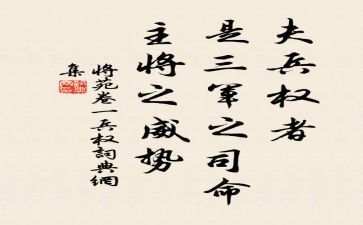 夫兵权者
是三军之司命
主将之威势
将苑卷一兵权词典網
集